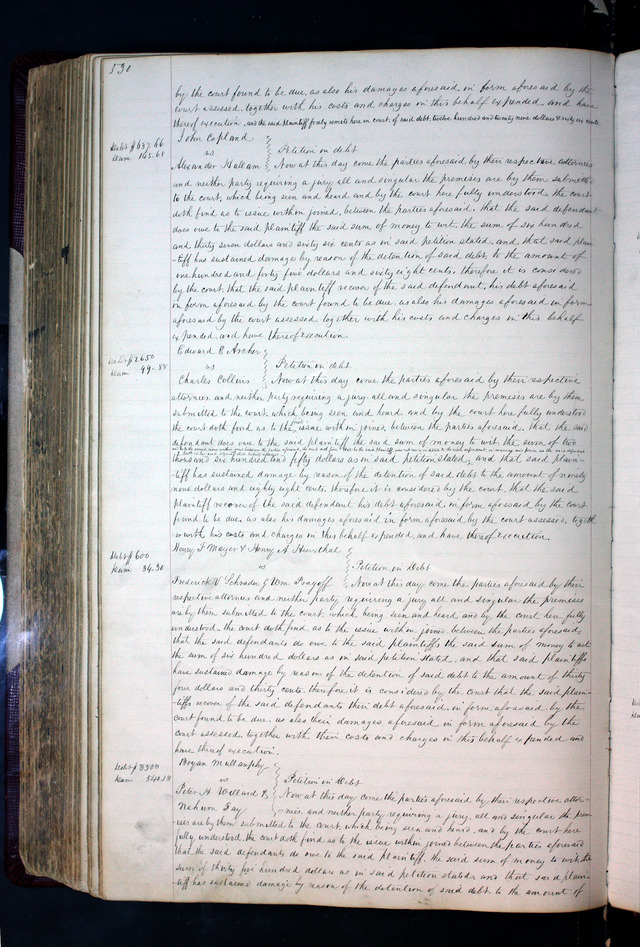 530
by the court found to be due, as also his damages aforesaid in form aforesaid by the
court assessed, together with his costs and charges in this behalf expended, and have
thereof execution, and the said plaintiff remits here in court of said debt twelve hundred and twenty nine dollars & sixty six cents.
John Copland
Debt $637.66
Dam 145.68
vs Petition in debt
Alexander Hallam Now at this day come the parties aforesaid by their respective attornies
and neither party requiring a jury, all and singular the premises are by them submitted
to the court, which being seen and heard and by the court here fully understood the court
doth find as to issue within joined, between the parties aforesaid, that the said defendant
does owe to the said plaintiff the said sum of money to wit, the sum of six hundred
and thirty seven dollars and sixty six cents as in said petition stated, and that said plain
-tiff has sustained damage by reason of the detention of said debt, to the amount of
one hundred and forty five dollars and sixty eight cents, therefore it is considered
by the court that the said plaintiff recover of the said defendant, his debt aforesaid
in form aforesaid by the court found to be due, as also his damages aforesaid in form
aforesaid by the court assessed, together with his costs and charges in this behalf
expended, and have thereof execution.
Edward B. Archer
Debt $2650
Dam 99.88
vs Petition in debt
Charles Collins Now at this day come the parties aforesaid by their respective
attornies and neither party requiring a jury, all and singular the premises are by them
submitted to the court, which being seen and heard and by the court here fully understood
the court doth find as to the issue within joined, between the parties aforesaid, that the said
defendant does owe to the said plaintiff the said sum of money to wit, the sum of two
thousand six hundred and fifty dollars as in said petition stated, and that said plain-
-tiff has sustained damage by reason of the detention of said debt to the amount of ninety
nine dollars and eighty eight cents, therefore it is considered by the court, that the said
plaintiff recover of the said defendant his debt aforesaid, in form aforesaid by the court
found to be due, as also his damages aforesaid in form aforesaid by the court assessed, togeth
er with his costs and charges in this behalf expended, and have thereof execution.
Henry
Debt $600
Dam 34.30
vs Petition in Debt
Frederick Schrader & Wm. Now at this day come the parties aforesaid by their
respective attornies and neither party requiring a jury all and singular the premises
are by them submitted to the court, which being seen and heard and by the court here fully
understood, the court doth find as to the issue within joined, between the parties aforesaid,
that the said defendants do owe to the said plaintiffs the said sum of money to wit
the sum of six hundred dollars as in said petition stated, and that said plaintiffs
have sustained damage by reason of the detention of said debt to the amount of thirty
four dollars and thirty cents, therefore it is considered by the court that the said plain-
-tiffs recover of the said defendants their debt aforesaid, in form aforesaid by the
court found to be due, as also their damages aforesaid in form aforesaid by the
court assessed, together with their costs and charges in this behalf expended and
have thereof execution.
Bryan Mullanphy
Debt $3500
Dam
vs Petition in Debt
Peter H. Willard & Now at this day come the parties aforesaid by their respective attor-
Nahum Fay -nies and neither party requiring a jury, all and singular the prem
ises are by them submitted to the court, which being seen and heard, and by the court here
fully understood, the court doth find as to the issue within joined between the parties aforesaid
that the said defendants do owe to the said plaintiff, the said sum of money to wit, the
sum of thirty five hundred dollars as in said petition stated, and that said plain-
-tiff has sustained damage by reason of the detention of said debt, to the amount of